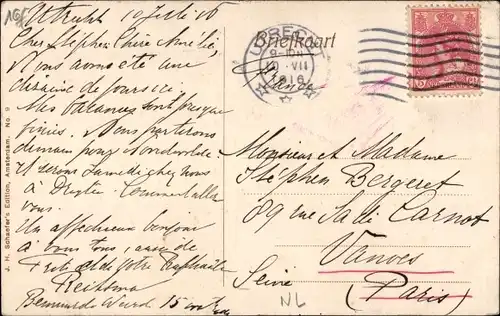 Utrecht 10 Juli 16
Cher Stéphen, Chère Amélie,
Nous avons été une
dizaine de jours ici.
Mes vacances sont presque
finies. Nous partirons
demain pour
et serons Samedi chez nous
à Comment allez
vous.
Un affectueux bonjour
à vous tous, aussi de
Frits et de votre
Reitsma
15
J. H. Schaefer's Edition, Amsterdam. No. 9
Briefkaart
UTRECHT
10 VII
1916
France
Monsieur et Madame
Stéphen Bergeret
89 rue Sadi Carnot
Vanves
Seine (Paris)
NL